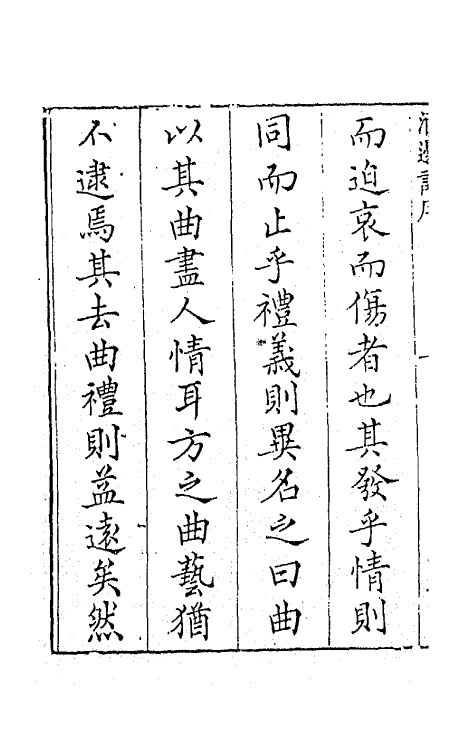 而迫哀而傷者也其發乎情則
同而止乎禮義則異名之曰曲
以其曲盡人情耳方之曲藝猶
不逮焉其去曲禮則益遠矣然